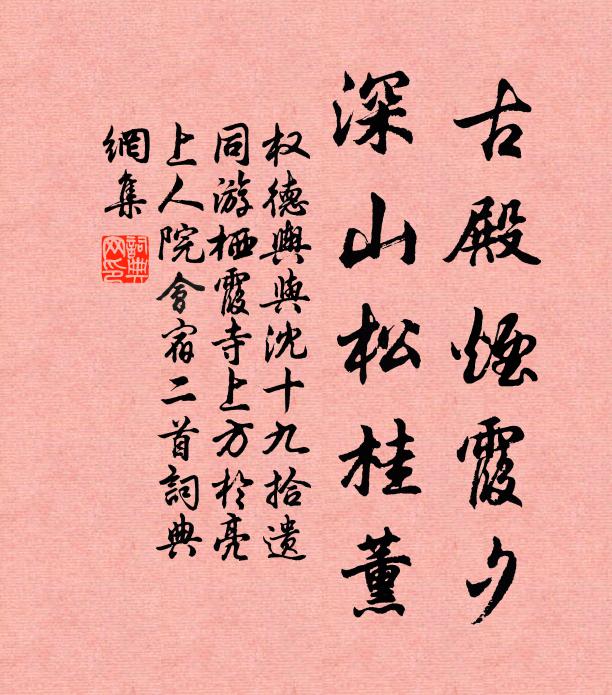 古殿煙霞夕
深山松桂薰
权德輿與沈十九拾遗
同游栖霞寺上方於亮
上人院會宿二首詞典
網集
詞典
网印